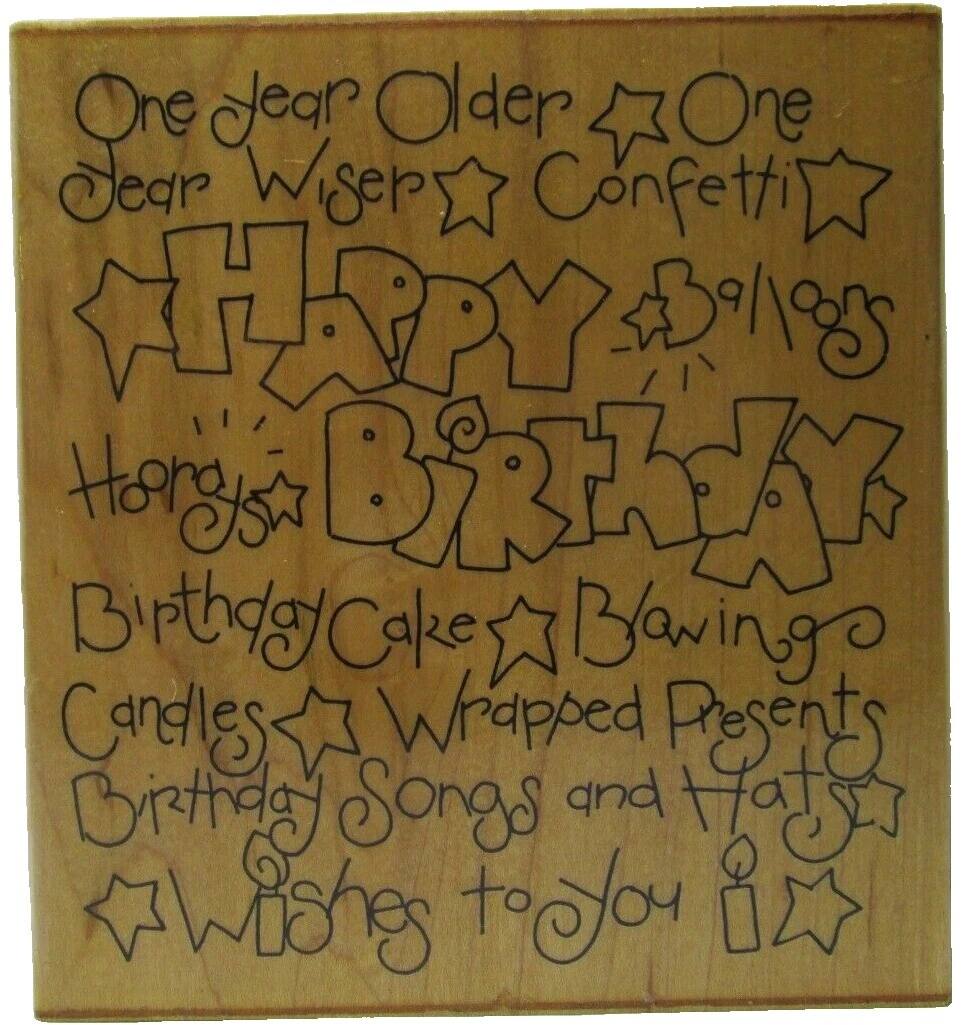 One year Older One
year Wiser Confetti
HAPPY Balloons
Hoorays BiRThdAY
Birthday Cake Blowing
Candles Wrapped Presents
Birthday Songs and Hats
Wishes to you